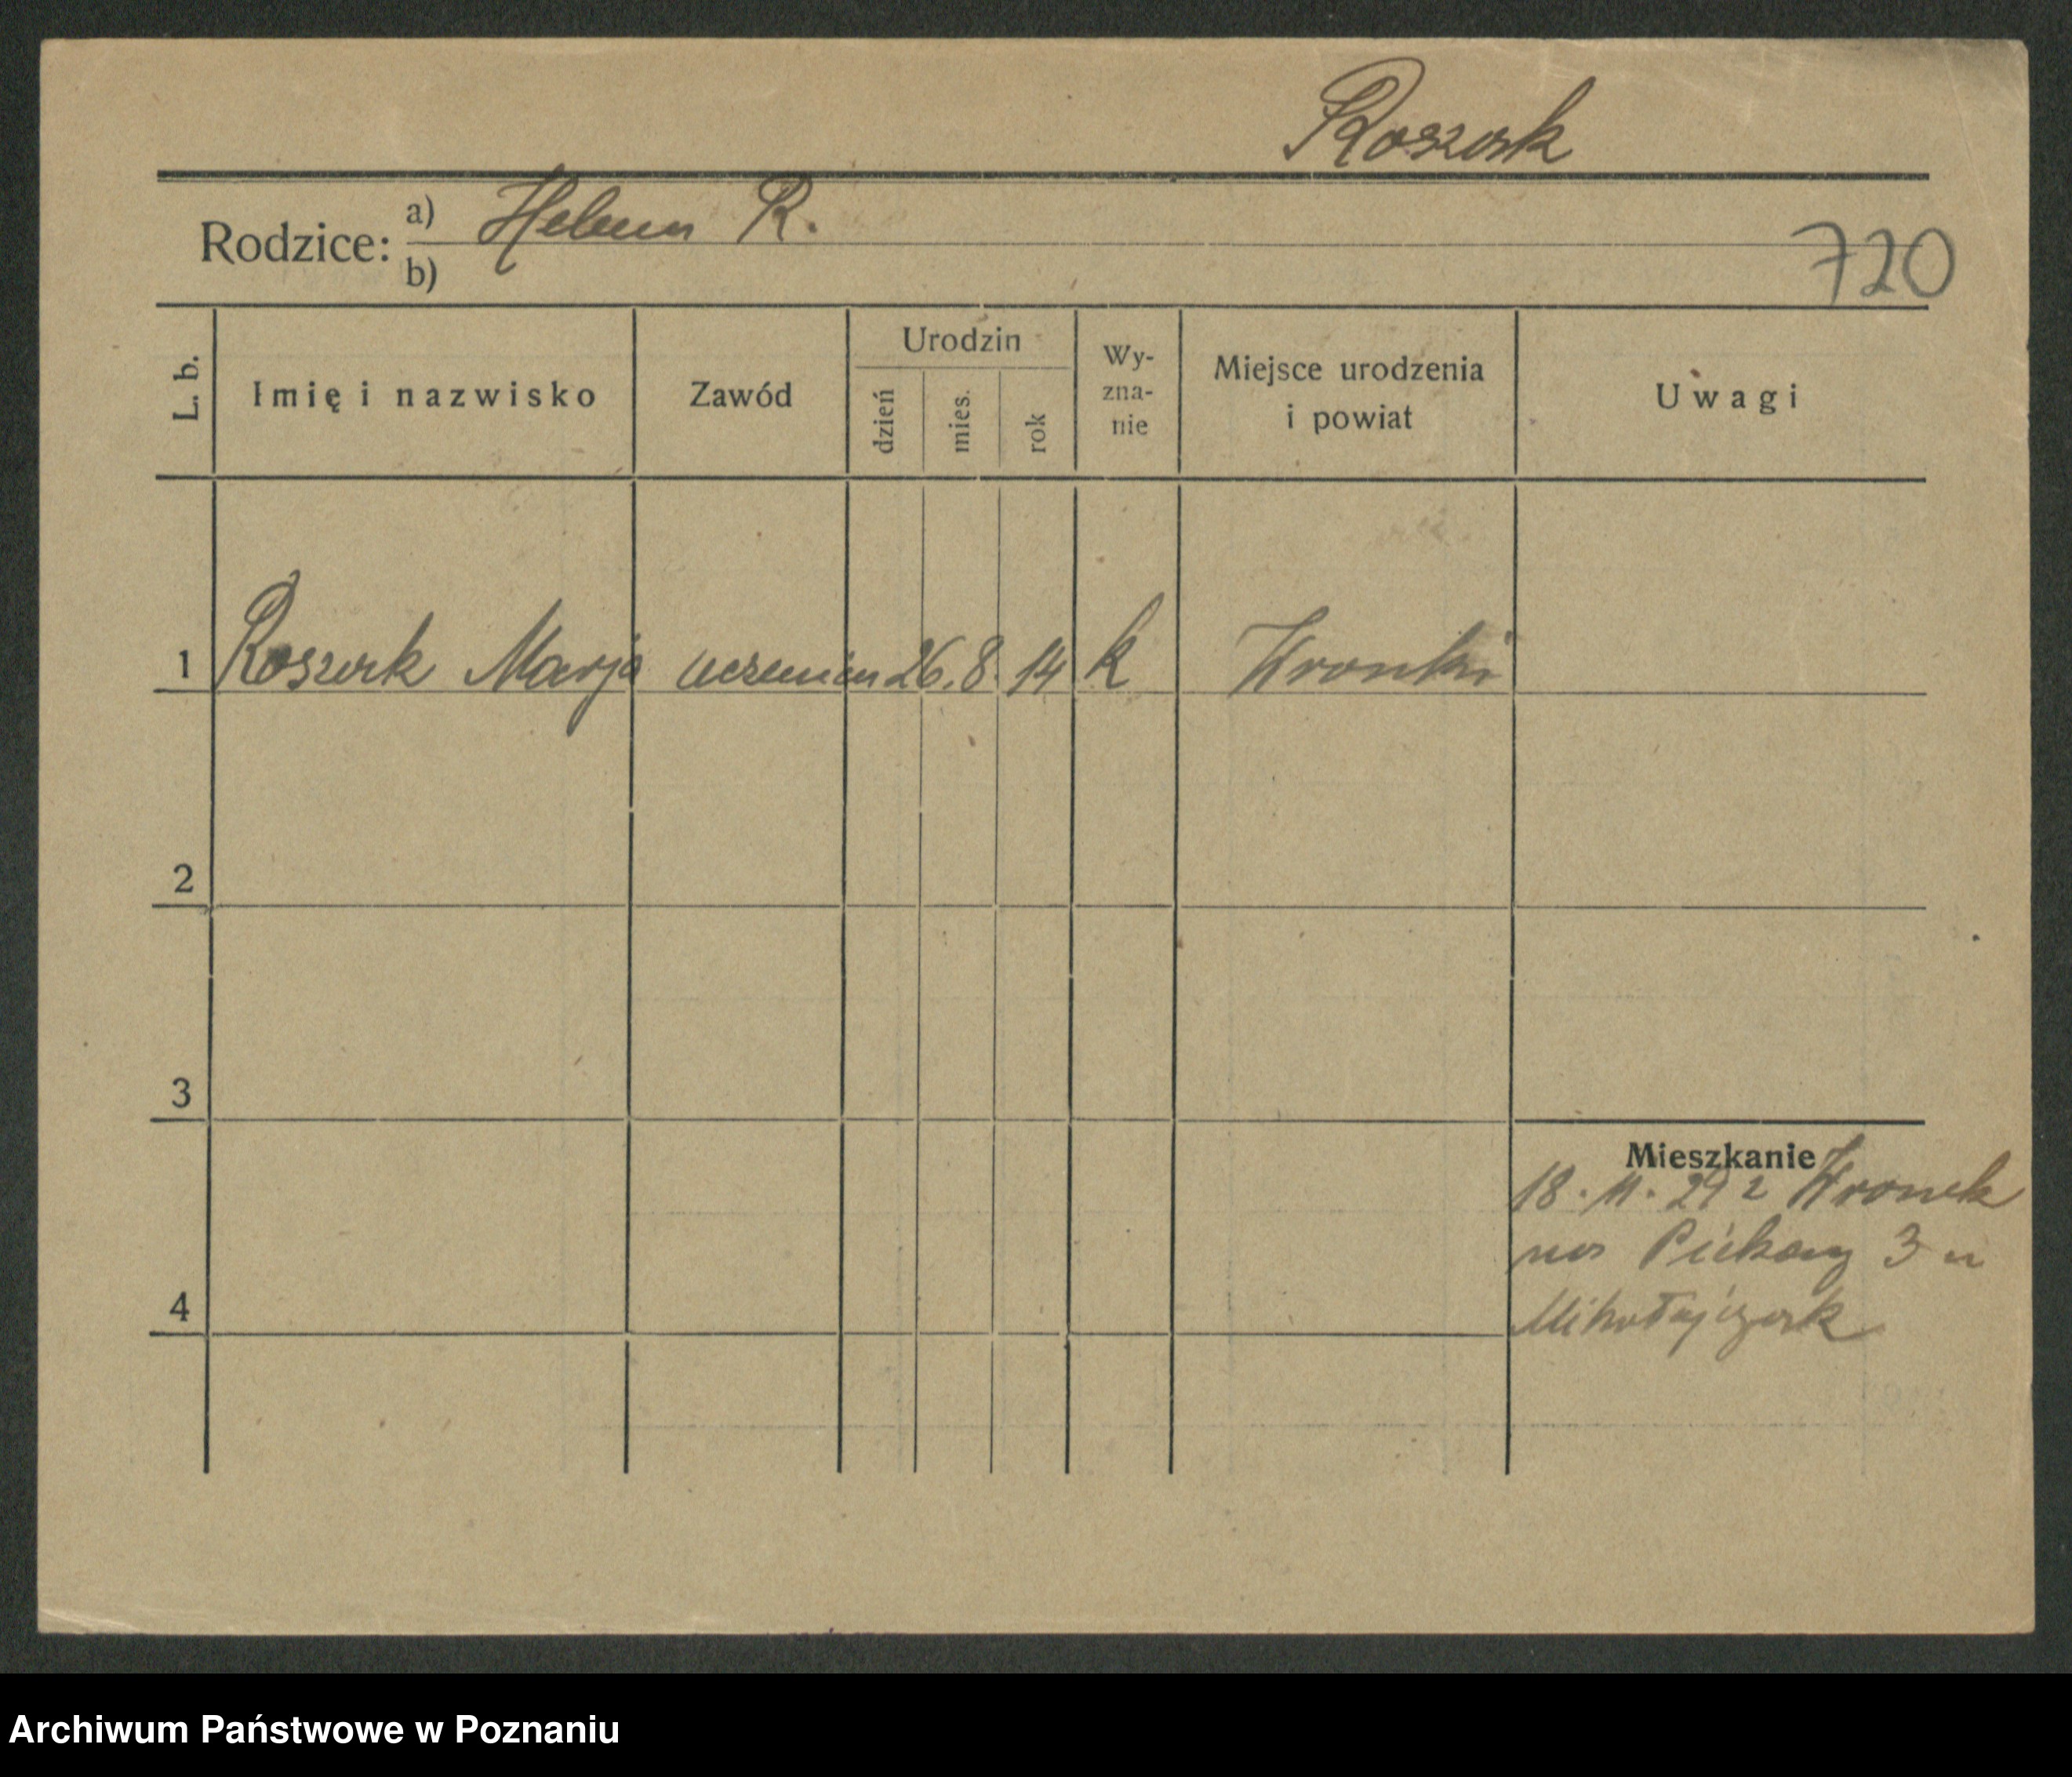 Roszak
Rodzice: a) Helena R.
b)
720
L. b. Imię i nazwisko Zawód Urodzin dzień mies. rok Wy-zna-nie Miejsce urodzenia i powiat Uwagi
1 Roszak Marja uczenica 26. 8. 14 k Wronki
2
3
Mieszkanie
18. 11. 29 z Wronek
na Piekary 3 u
4
Mikołajczak
Archiwum Państwowe w Poznaniu